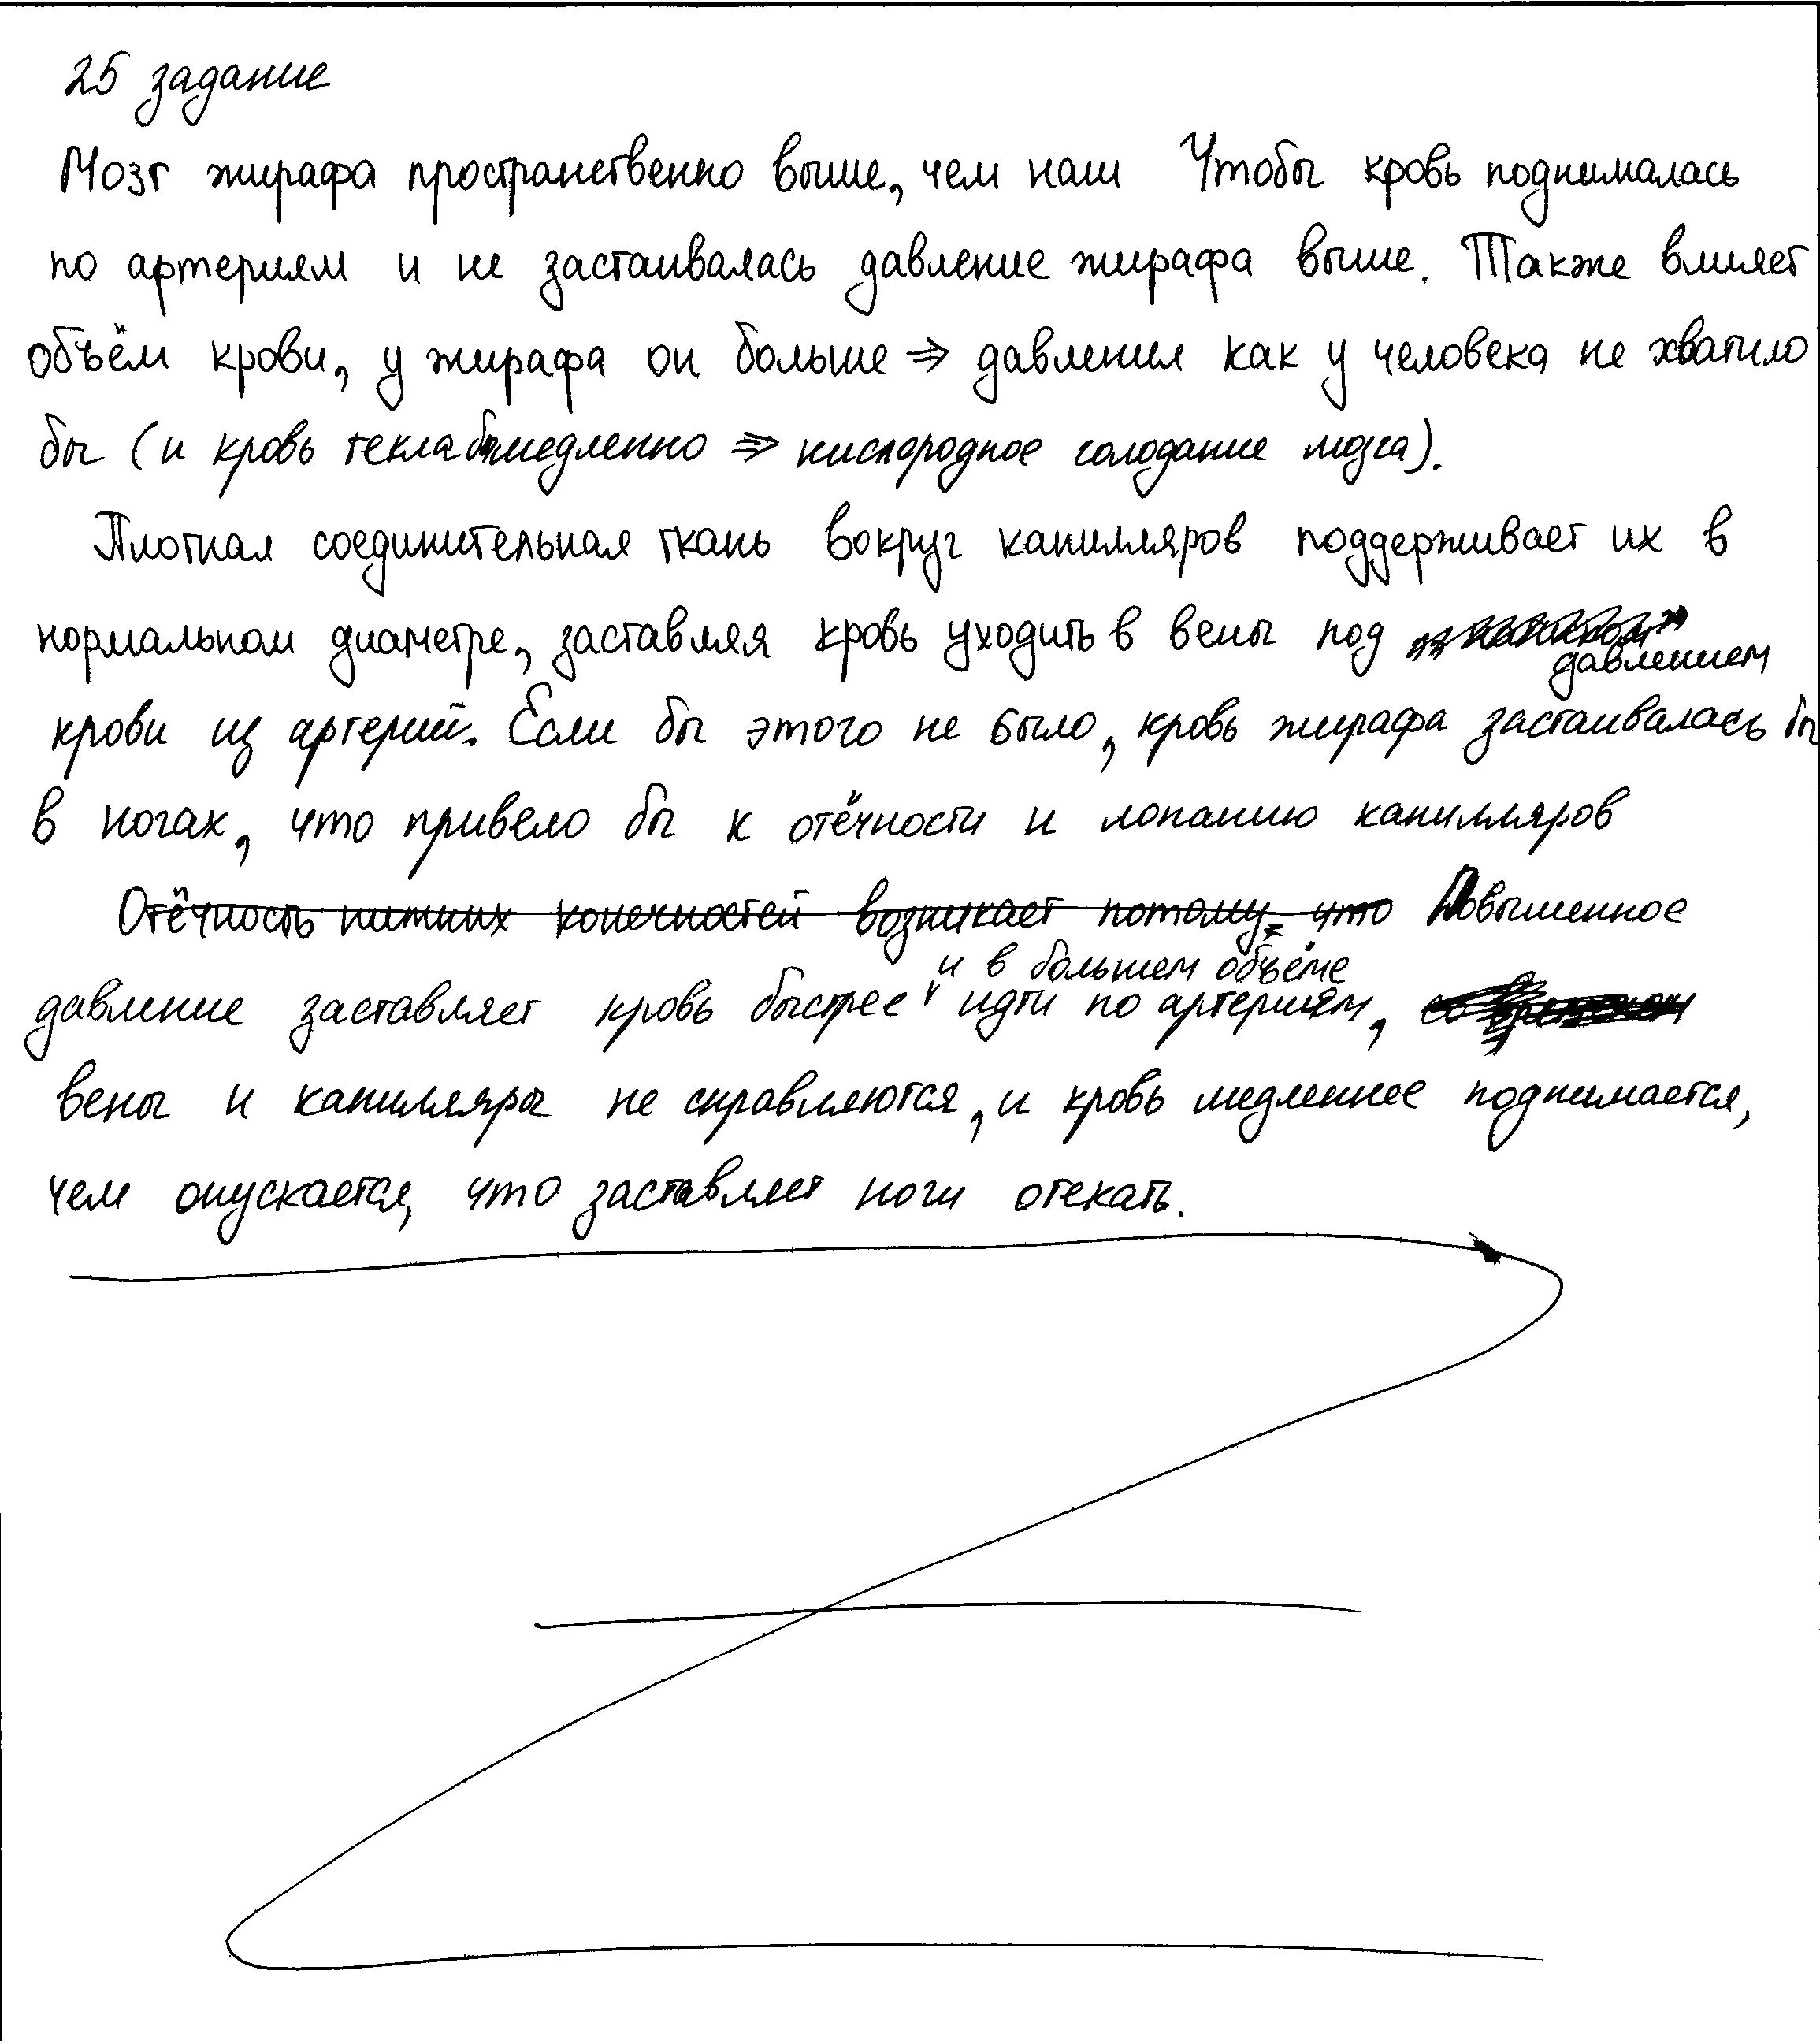 25 задание
Мозг жирафа пространственно выше, чем наш Чтобы кровь поднималась
по артериям и не застаивалась давление жирафа выше. Также влияет
объём крови, у жирафа он больше ⇒ давления как у человека не хватило
бы (и кровь текла бы медленно ⇒ кислородное голодание мозга).
Плотная соединительная ткань вокруг капилляров поддерживает их в
нормальном диаметре, заставляя кровь уходить в вены под
давлением
крови из артерий. Если бы этого не было, кровь жирафа застаивалась бы
в ногах, что привело бы к отёчности и лопанию капилляров
Отёчность нижних конечностей возникает потому, что Повышенное
и в большем объёме
давление заставляет кровь быстрее идти по артериям,
вены и капилляры не справляются, и кровь медленнее поднимается,
чем опускается, что заставляет ноги отекать.